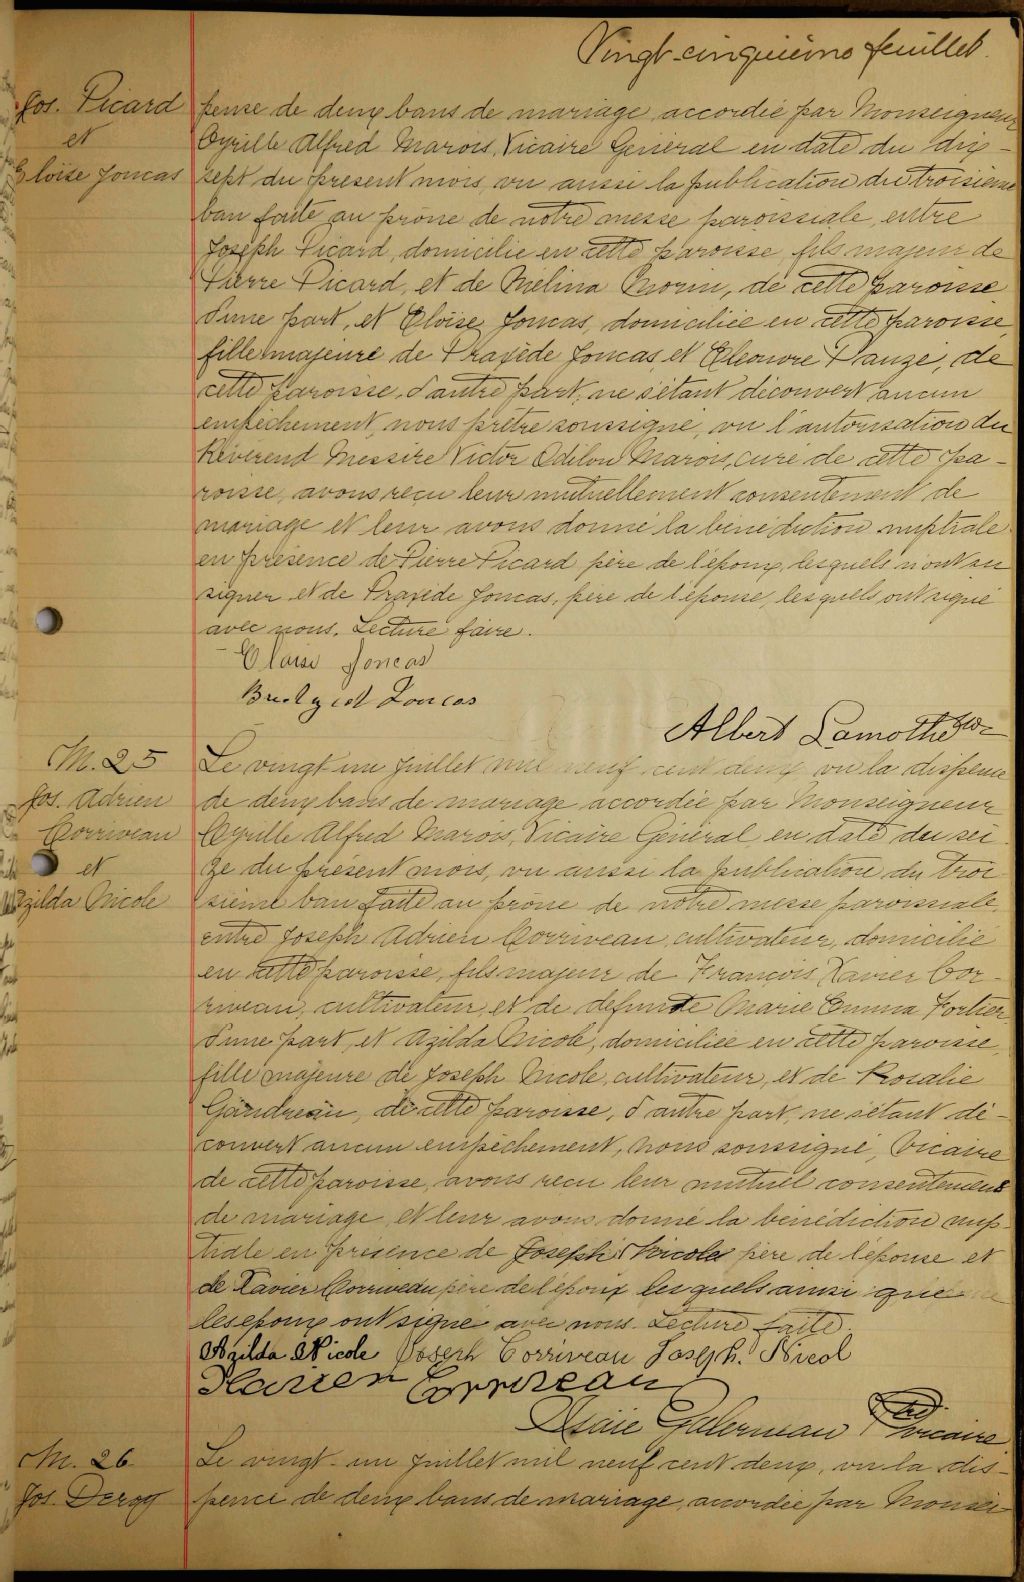 Vingt-cinquième feuillet.
Jos. Picard
et
Eloïse Joncas
pense de deux bans de mariage accordée par Monseigneur
Cyrille Alfred Marois, Vicaire Général en date du dix-
sept du présent mois, vu aussi la publication du troisième
ban faite au prône de notre messe paroissiale, entre
Joseph Picard, domicilié en cette paroisse, fils majeur de
Pierre Picard, et de Mélina Morin, de cette paroisse
d'une part, et Eloïse Joncas, domiciliée en cette paroisse,
fille majeure de Praxède Joncas, et Eleonore Pauzé, de
cette paroisse, d'autre part; ne s'étant découvert aucun
empêchement, nous prêtre soussigné, vu l'autorisation du
Révérend Messire Victor Odilon Marois, curé de cette pa-
roisse, avons reçu leur mutuellement consentement de
mariage et leur avons donné la bénédiction nuptiale
en présence de Pierre Picard père de l'époux, lesquels n'ont su
signer et de Praxède Joncas, père de l'épouse, lesquels ont signé
avec nous. Lecture faire.
Eloise Joncas
Bridgiet Joncas
Albert Lamothe Ptre
M. 25
Jos. Adrien
Corriveau
et
Azilda Nicole
Le vingt-un juillet mil neuf cent deux vu la dispense
de deux bans de mariage accordée par Monseigneur
Cyrille Alfred Marois, Vicaire Général, en date du sei
ze du présent mois, vu aussi la publication du troi
sième ban faite au prône de notre messe paroissiale,
entre Joseph Adrien Corriveau, cultivateur, domicilié
en cette paroisse, fils majeur de François Xavier Cor-
riveau, cultivateur, et de défunte Marie Emma Fortier
d'une part, et Azilda Nicole, domiciliée en cette paroisse,
fille majeure de Joseph Nicole, cultivateur, et de Rosalie
Gaudreau, de cette paroisse, d'autre part, ne s'étant dé-
couvert aucun empêchement, nous soussigné, Vicaire
de cette paroisse, avons reçu leur mutuel consentement
de mariage et leur avons donné la bénédiction nup-
tiale en présence de Joseph Nicole père de l'épouse et
de Xavier Corriveau père de l'époux lesquels ainsi que
les époux ont signé avec nous. Lecture faite.
Azilda Nicole Joseph Corriveau Joseph. Nicol
Xavier Corriveau
Isaie Galerneau Ptre
vicaire
M. 26
Jos. Deroy
Le vingt-un juillet mil neuf cent deux, vu la dis-
pence de deux bans de mariage, accordée par Monsei-